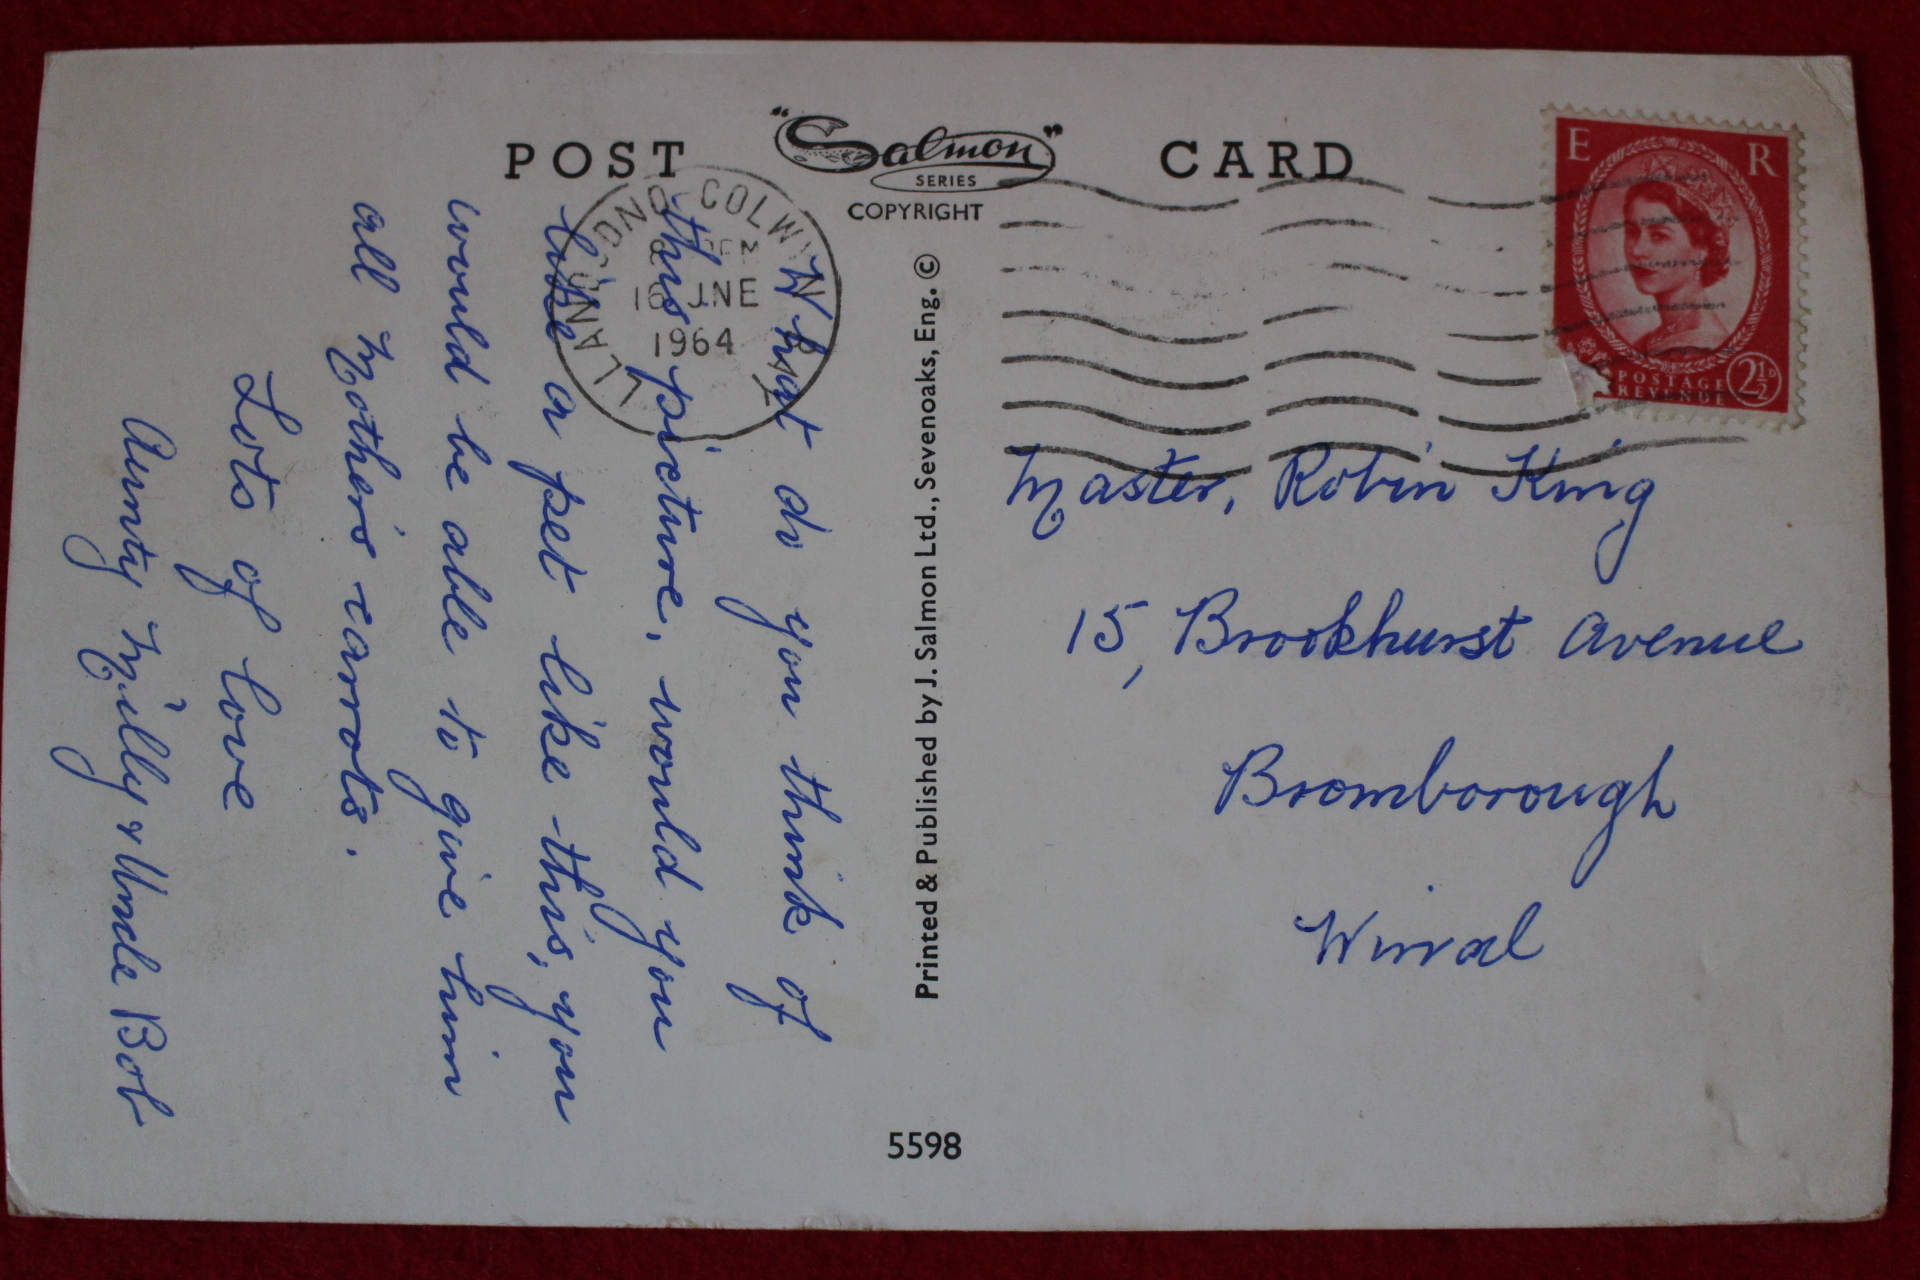 POST
"Salmon"
SERIES
COPYRIGHT
CARD
E R
POSTAGE
REVENUE
2½D
LLANDUDNO COLWYN BAY
PM
16 JNE
1964
What do you think of
this picture, would you
like a pet like this, you
would be able to give him
all Mothers carrots.
Lots of love
Aunty Milly & Uncle Bob
Printed & Published by J. Salmon Ltd., Sevenoaks, Eng. ©
Master, Robin King
15, Brookhurst Avenue
Bromborough
Wirral
5598